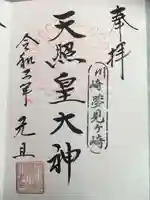 奉拝
川崎夢見ヶ崎
天照皇大神
令和三年 元旦